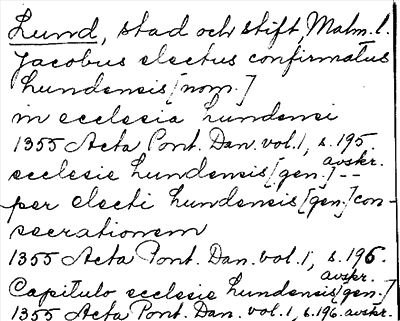 Lund, stad och stift, Malm. l.
Jacobus electus confirmatus
lundensis [nom.]
in ecclesia lundensi
1355 Acta Pont. Dan. vol. 1, s. 195.
avskr.
ecclesie lundensis [gen.] --
per electi lundensis [gen.] con-
secrationem
1355 Acta Pont. Dan. vol. 1, s. 196.
avskr.
Capitulo ecclesie lundensis [gen.]
1355 Acta Pont. Dan. vol. 1, s. 196. avskr.